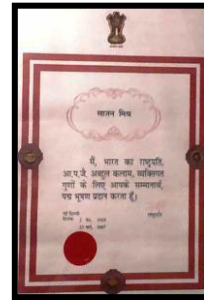 साजन मिश्र
मैं, भारत का राष्ट्रपति,
आ.प.जै. अब्दुल कलाम, व्यक्तिगत
गुणों के लिए आपके सम्मानार्थ,
पद्म भूषण प्रदान करता हूँ।
नई दिल्ली
दिनांक
राष्ट्रपति
2007